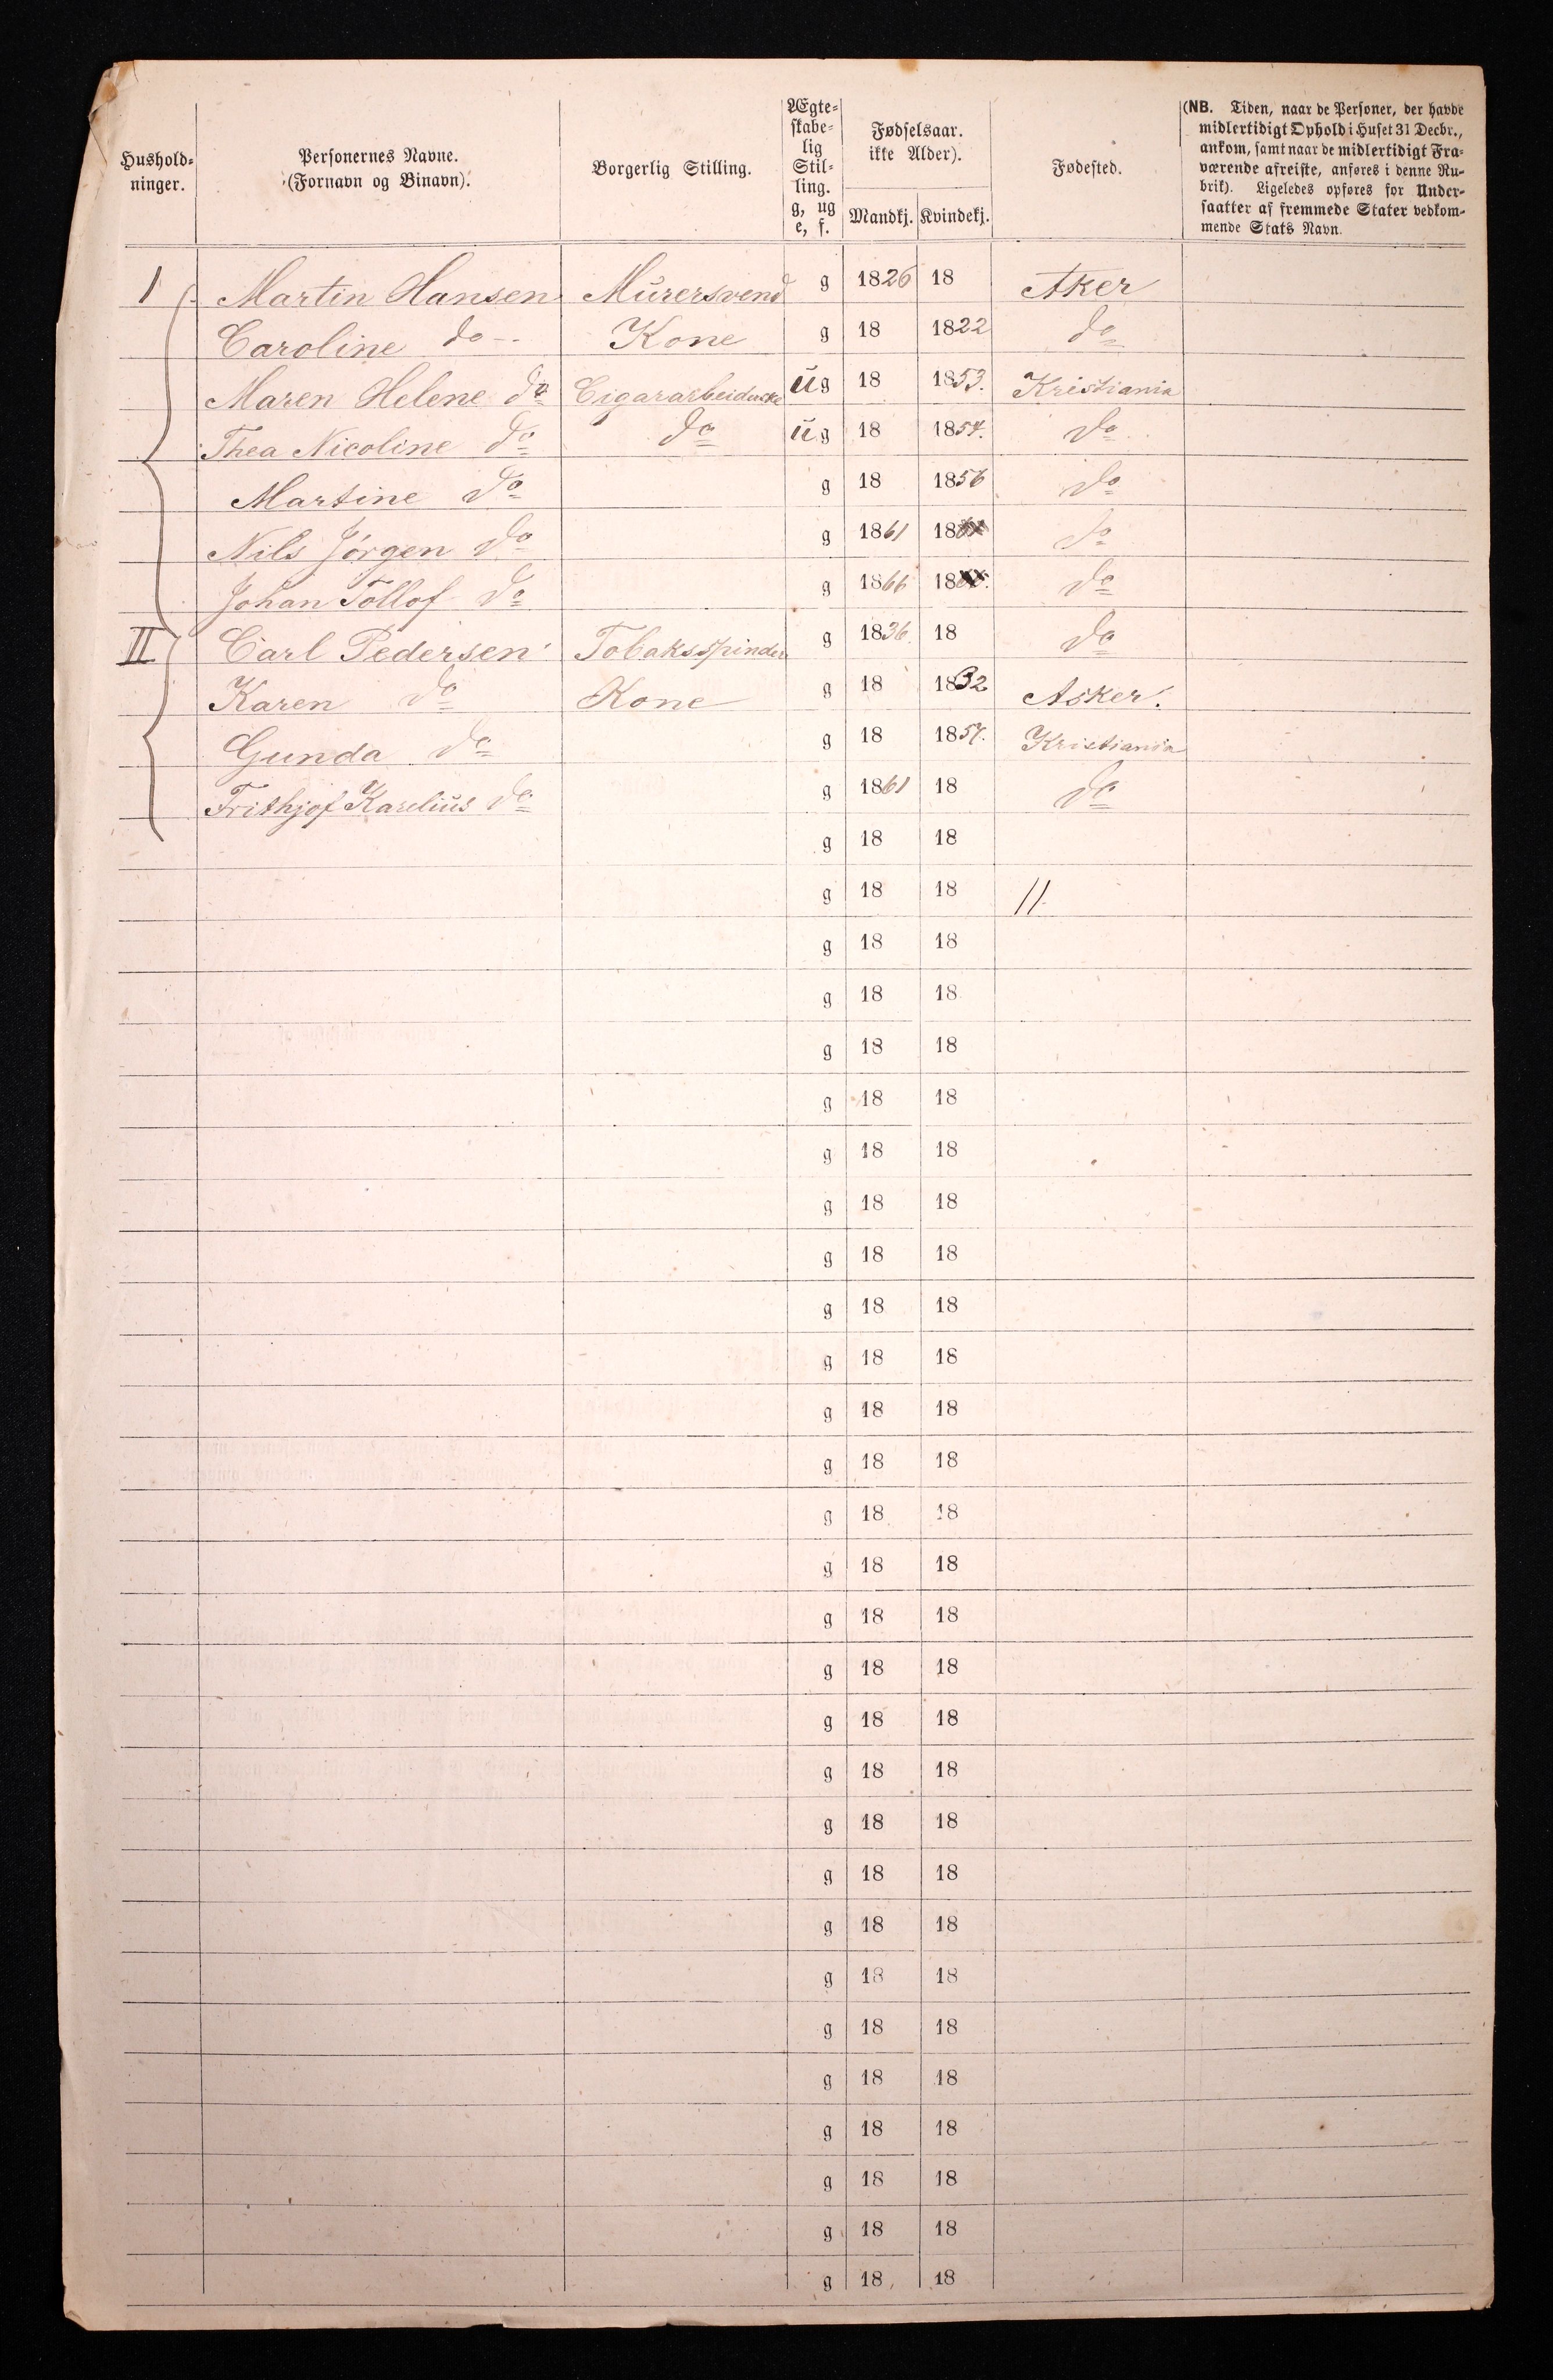 Hushold-
ninger.
Personernes Navne.
(Fornavn og Binavn).
Borgerlig Stilling.
Ægte-
skabe-
lig
Stil-
ling.
g, ug
e, f.
Fødselsaar.
ikke Alder).
Mandkj. Kvindekj.
Fødested.
(NB. Tiden, naar de Personer, der havde
midlertidigt Ophold i Huset 31 Decbr.,
ankom, samt naar de midlertidigt Fra-
værende afreiste, anføres i denne Ru-
brik). Ligeledes opføres for Under-
saatter af fremmede Stater vedkom-
mende Stats Navn.
I Martin Hansen Mŭrersvend g 1826 18 Aker
Caroline do Kone g 18 1822 do
Maren Helene do Cigararbeiderske ŭg 18 1853. Kristiania
Thea Nicoline do do ŭg 18 1854. do
Martine do g 18 1856 do
Nils Jörgen do g 1861 18 do
Johan Tollof do g 1866 18 do
II Carl Pedersen Tobaksspinder g 1836. 18 do
Karen do Kone g 18 1832 Asker.
Gunda do g 18 1857. Kristiania
Frithjof Kareliŭs do g 1861 18 do
g 18 18
g 18 18 11
g 18 18
g 18 18
g 18 18
g 18 18
g 18 18
g 18 18
g 18 18
g 18 18
g 18 18
g 18 18
g 18 18
g 18 18
g 18 18
g 18 18
g 18 18
g 18 18
g 18 18
g 18 18
g 18 18
g 18 18
g 18 18
g 18 18
g 18 18
g 18 18
g 18 18
g 18 18
g 18 18